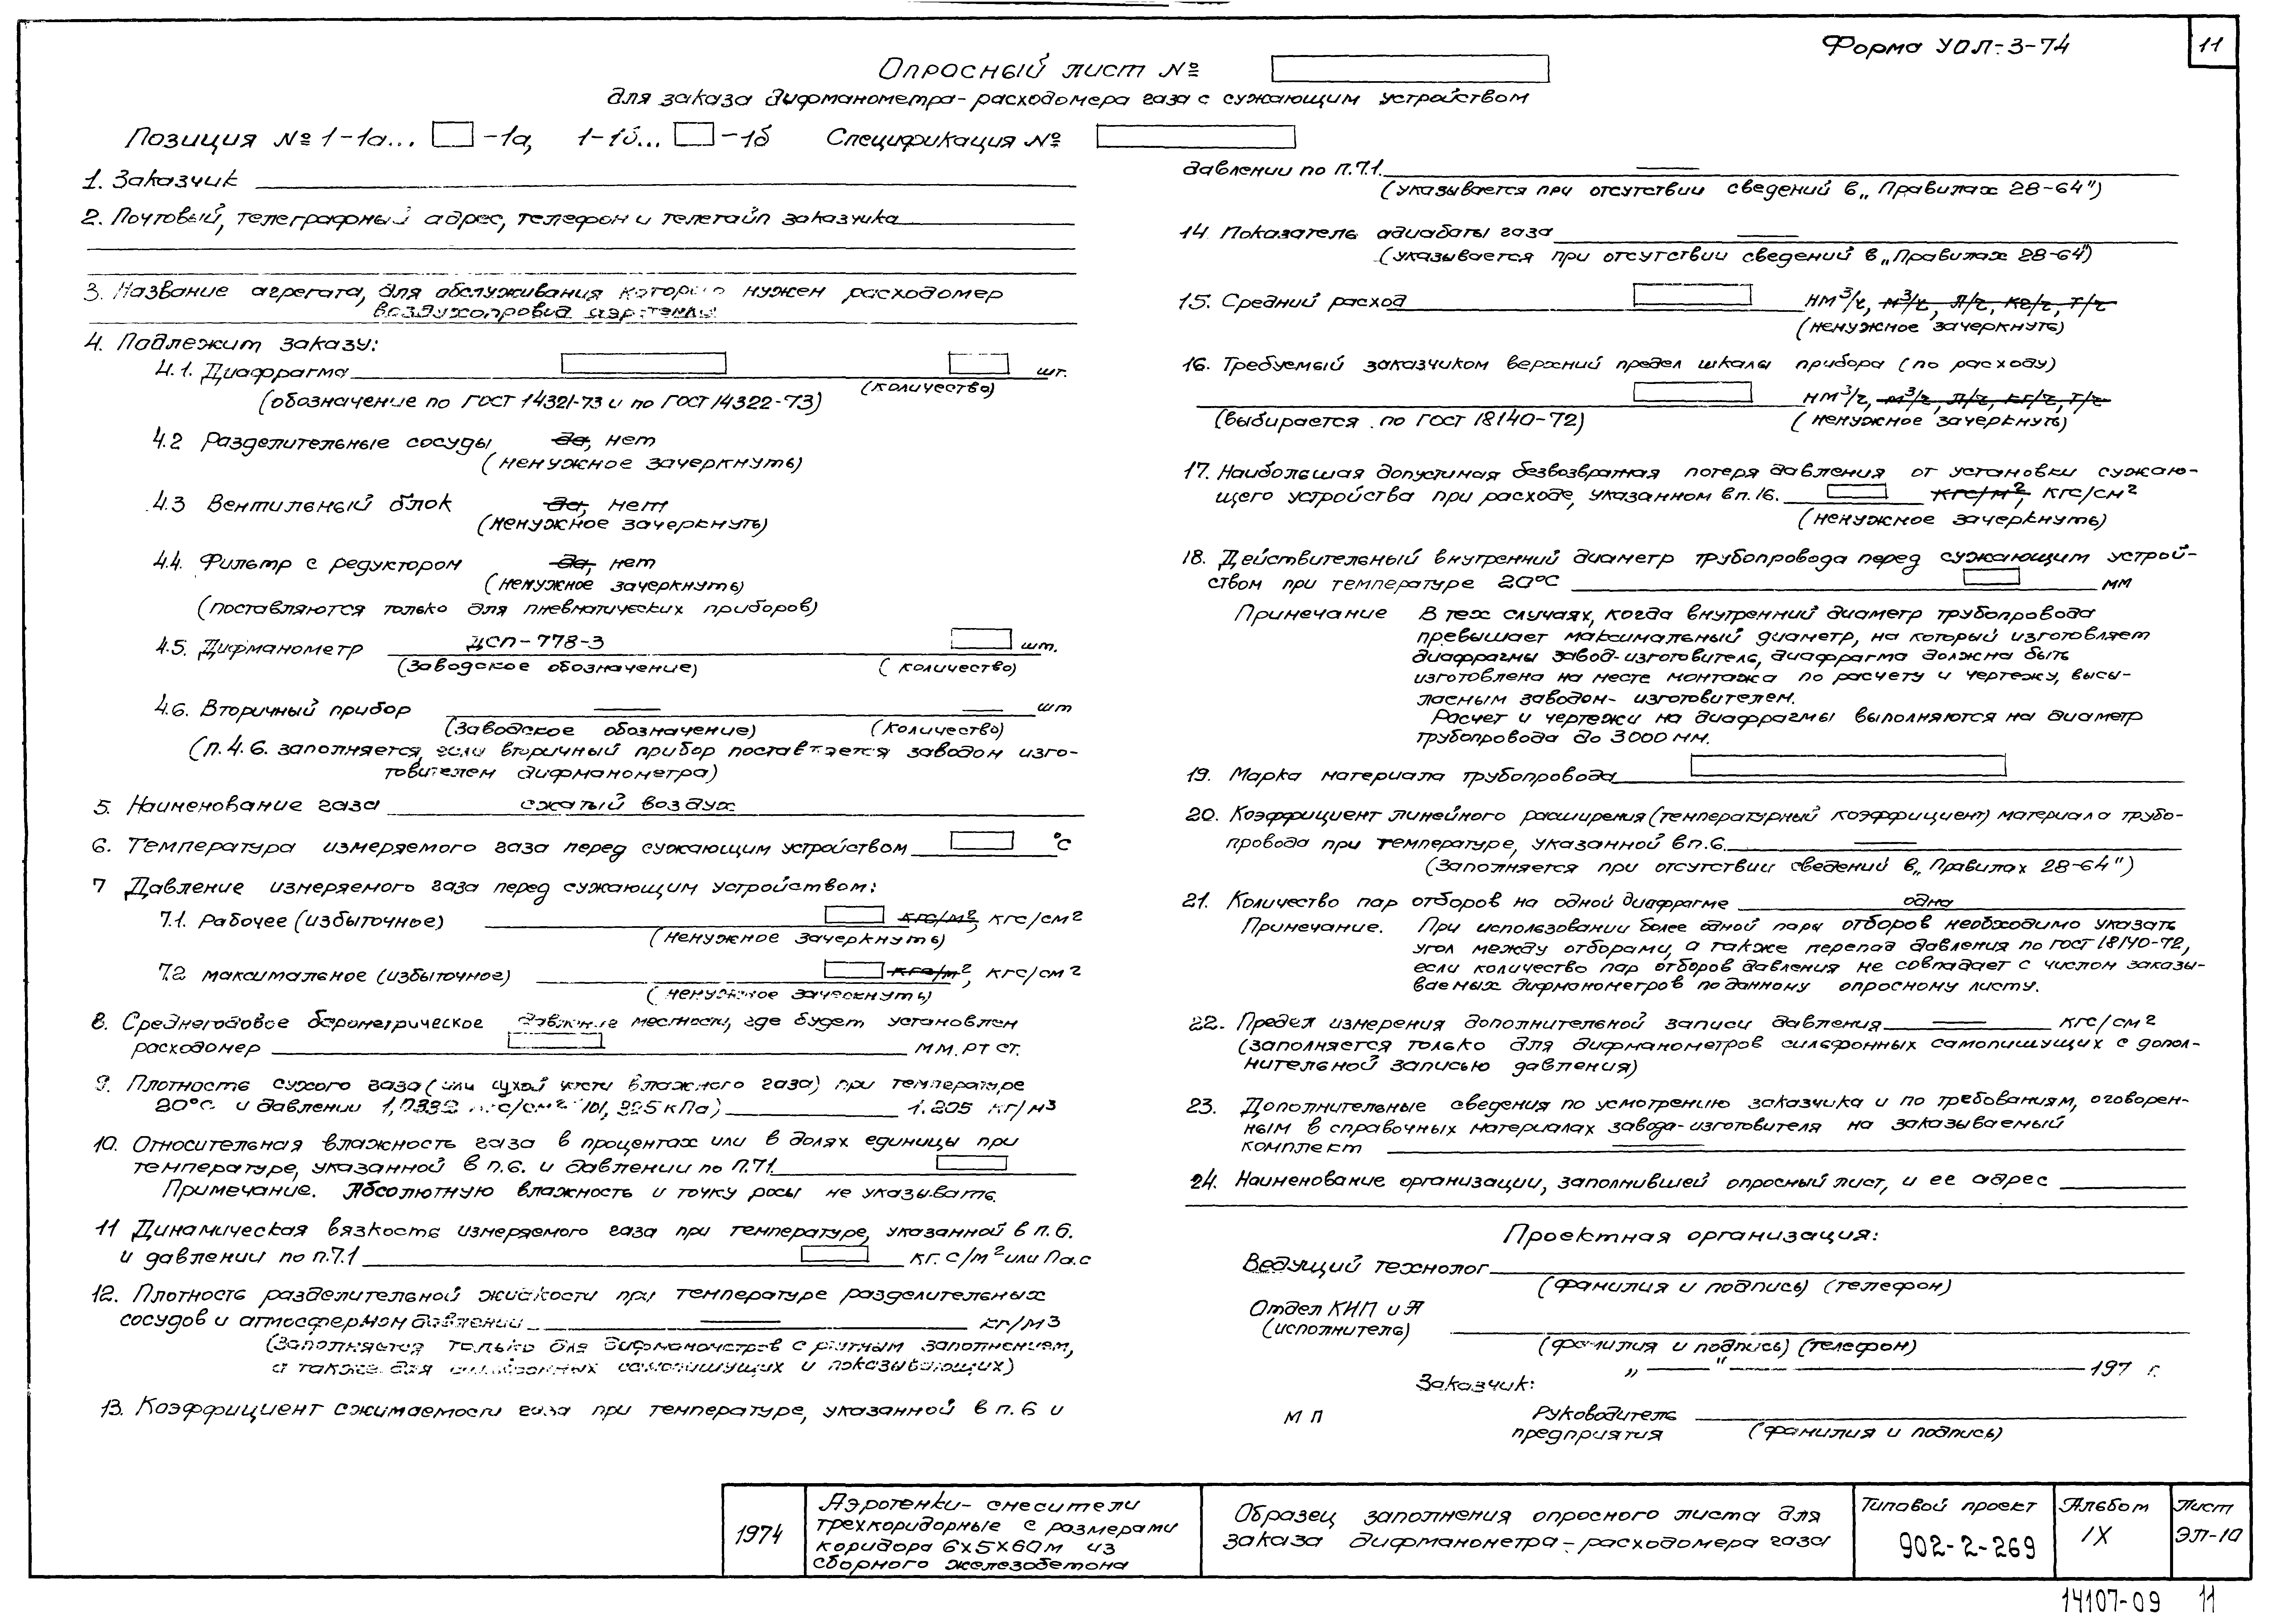 Форма УОЛ-3-74
11
Опросный лист №
для заказа дифманометра-расходомера газа с сужающим устройством
Позиция № 1-1а... -1а, 1-1б... -1б Спецификация №
1. Заказчик
2. Почтовый, телеграфный адрес, телефон и телетайп заказчика
3. Название агрегата, для обслуживания которого нужен расходомер
воздухопровод аэротенка
4. Подлежит заказу:
4.1. Диафрагма шт.
(количество)
(обозначение по ГОСТ 14321-73 и по ГОСТ 14322-73)
4.2 Разделительные сосуды да, нет
(ненужное зачеркнуть)
4.3 Вентильный блок да, нет
(ненужное зачеркнуть)
4.4. Фильтр с редуктором да, нет
(ненужное зачеркнуть)
(поставляются только для пневматических приборов)
4.5. Дифманометр ДСП-778-3 шт.
(Заводское обозначение) (количество)
4.6. Вторичный прибор шт
(Заводское обозначение) (количество)
(п. 4.6. заполняется, если вторичный прибор поставляется заводом изго-
товителем дифманометра)
5. Наименование газа сжатый воздух
6. Температура измеряемого газа перед сужающим устройством °С
7 Давление измеряемого газа перед сужающим устройством:
7.1. Рабочее (избыточное) кгс/м², кгс/см²
(ненужное зачеркнуть)
7.2 максимальное (избыточное) кгс/м², кгс/см²
(ненужное зачеркнуть)
8. Среднегодовое барометрическое давление местности, где будет установлен
расходомер мм. рт ст.
9. Плотность сухого газа (или сухой части влажного газа) при температуре
20°С и давлении 1,0332 кгс/см² (101,325 кПа) 1.205 кг/м3
10. Относительная влажность газа в процентах или в долях единицы при
температуре, указанной в п.6. и давлении по п.7.1
Примечание. Абсолютную влажность и точку росы не указывать.
11 Динамическая вязкость измеряемого газа при температуре, указанной в п. 6.
и давлении по п.7.1 кг.с/м² или Па.с
12. Плотность разделительной жидкости при температуре разделительных
сосудов и атмосферном давлении кг/м3
(Заполняется только для дифманометров с ртутным заполнением,
а также для сильфонных самопишущих и показывающих)
13. Коэффициент сжимаемости газа при температуре, указанной в п. 6 и
давлении по п.7.1.
(указывается при отсутствии сведений в „Правилах 28-64")
14. Показатель адиабаты газа
(указывается при отсутствии сведений в „Правилах 28-64")
15. Средний расход нм³/ч, м³/ч, л/ч, кг/ч, т/ч
(ненужное зачеркнуть)
16. Требуемый заказчиком верхний предел шкалы прибора (по расходу)
нм³/ч, м³/ч, л/ч, кг/ч, т/ч
(выбирается по ГОСТ 18140-72) (ненужное зачеркнуть)
17. Наибольшая допустимая безвозвратная потеря давления от установки сужаю-
щего устройства при расходе, указанном в п. 16. кгс/м², кгс/см²
(ненужное зачеркнуть)
18. Действительный внутренний диаметр трубопровода перед сужающим устрой-
ством при температуре 20°С мм
Примечание В тех случаях, когда внутренний диаметр трубопровода
превышает максимальный диаметр, на который изготовляет
диафрагмы завод-изготовитель, диафрагма должна быть
изготовлена на месте монтажа по расчету и чертежу, высы-
лаемым заводом-изготовителем.
Расчет и чертежи на диафрагмы выполняются на диаметр
трубопровода до 3000 мм.
19. Марка материала трубопровода
20. Коэффициент линейного расширения (температурный коэффициент) материала трубо-
провода при температуре, указанной в п.6.
(Заполняется при отсутствии сведений в „Правилах 28-64")
21. Количество пар отборов на одной диафрагме одна
Примечание. При использовании более одной пары отборов необходимо указать
угол между отборами, а также перепад давления по ГОСТ 18140-72,
если количество пар отборов давления не совпадает с числом заказы-
ваемых дифманометров по данному опросному листу.
22. Предел измерения дополнительной записи давления кгс/см²
(заполняется только для дифманометров сильфонных самопишущих с допол-
нительной записью давления)
23. Дополнительные сведения по усмотрению заказчика и по требованиям, оговорен-
ным в справочных материалах завода-изготовителя на заказываемый
комплект
24. Наименование организации, заполнившей опросный лист, и ее адрес
Проектная организация:
Ведущий технолог
(фамилия и подпись) (телефон)
Отдел КИП и А
(исполнитель)
(фамилия и подпись) (телефон)
„ " 197 г.
Заказчик:
М П Руководитель
предприятия (фамилия и подпись)
1974
Аэротенки-смесители
трехкоридорные с размерами
коридора 6х5х60м из
сборного железобетона
Образец заполнения опросного листа для
заказа дифманометра-расходомера газа
Типовой проект
902-2-269
Альбом
IX
Лист
ЭЛ-10
14107-09 11